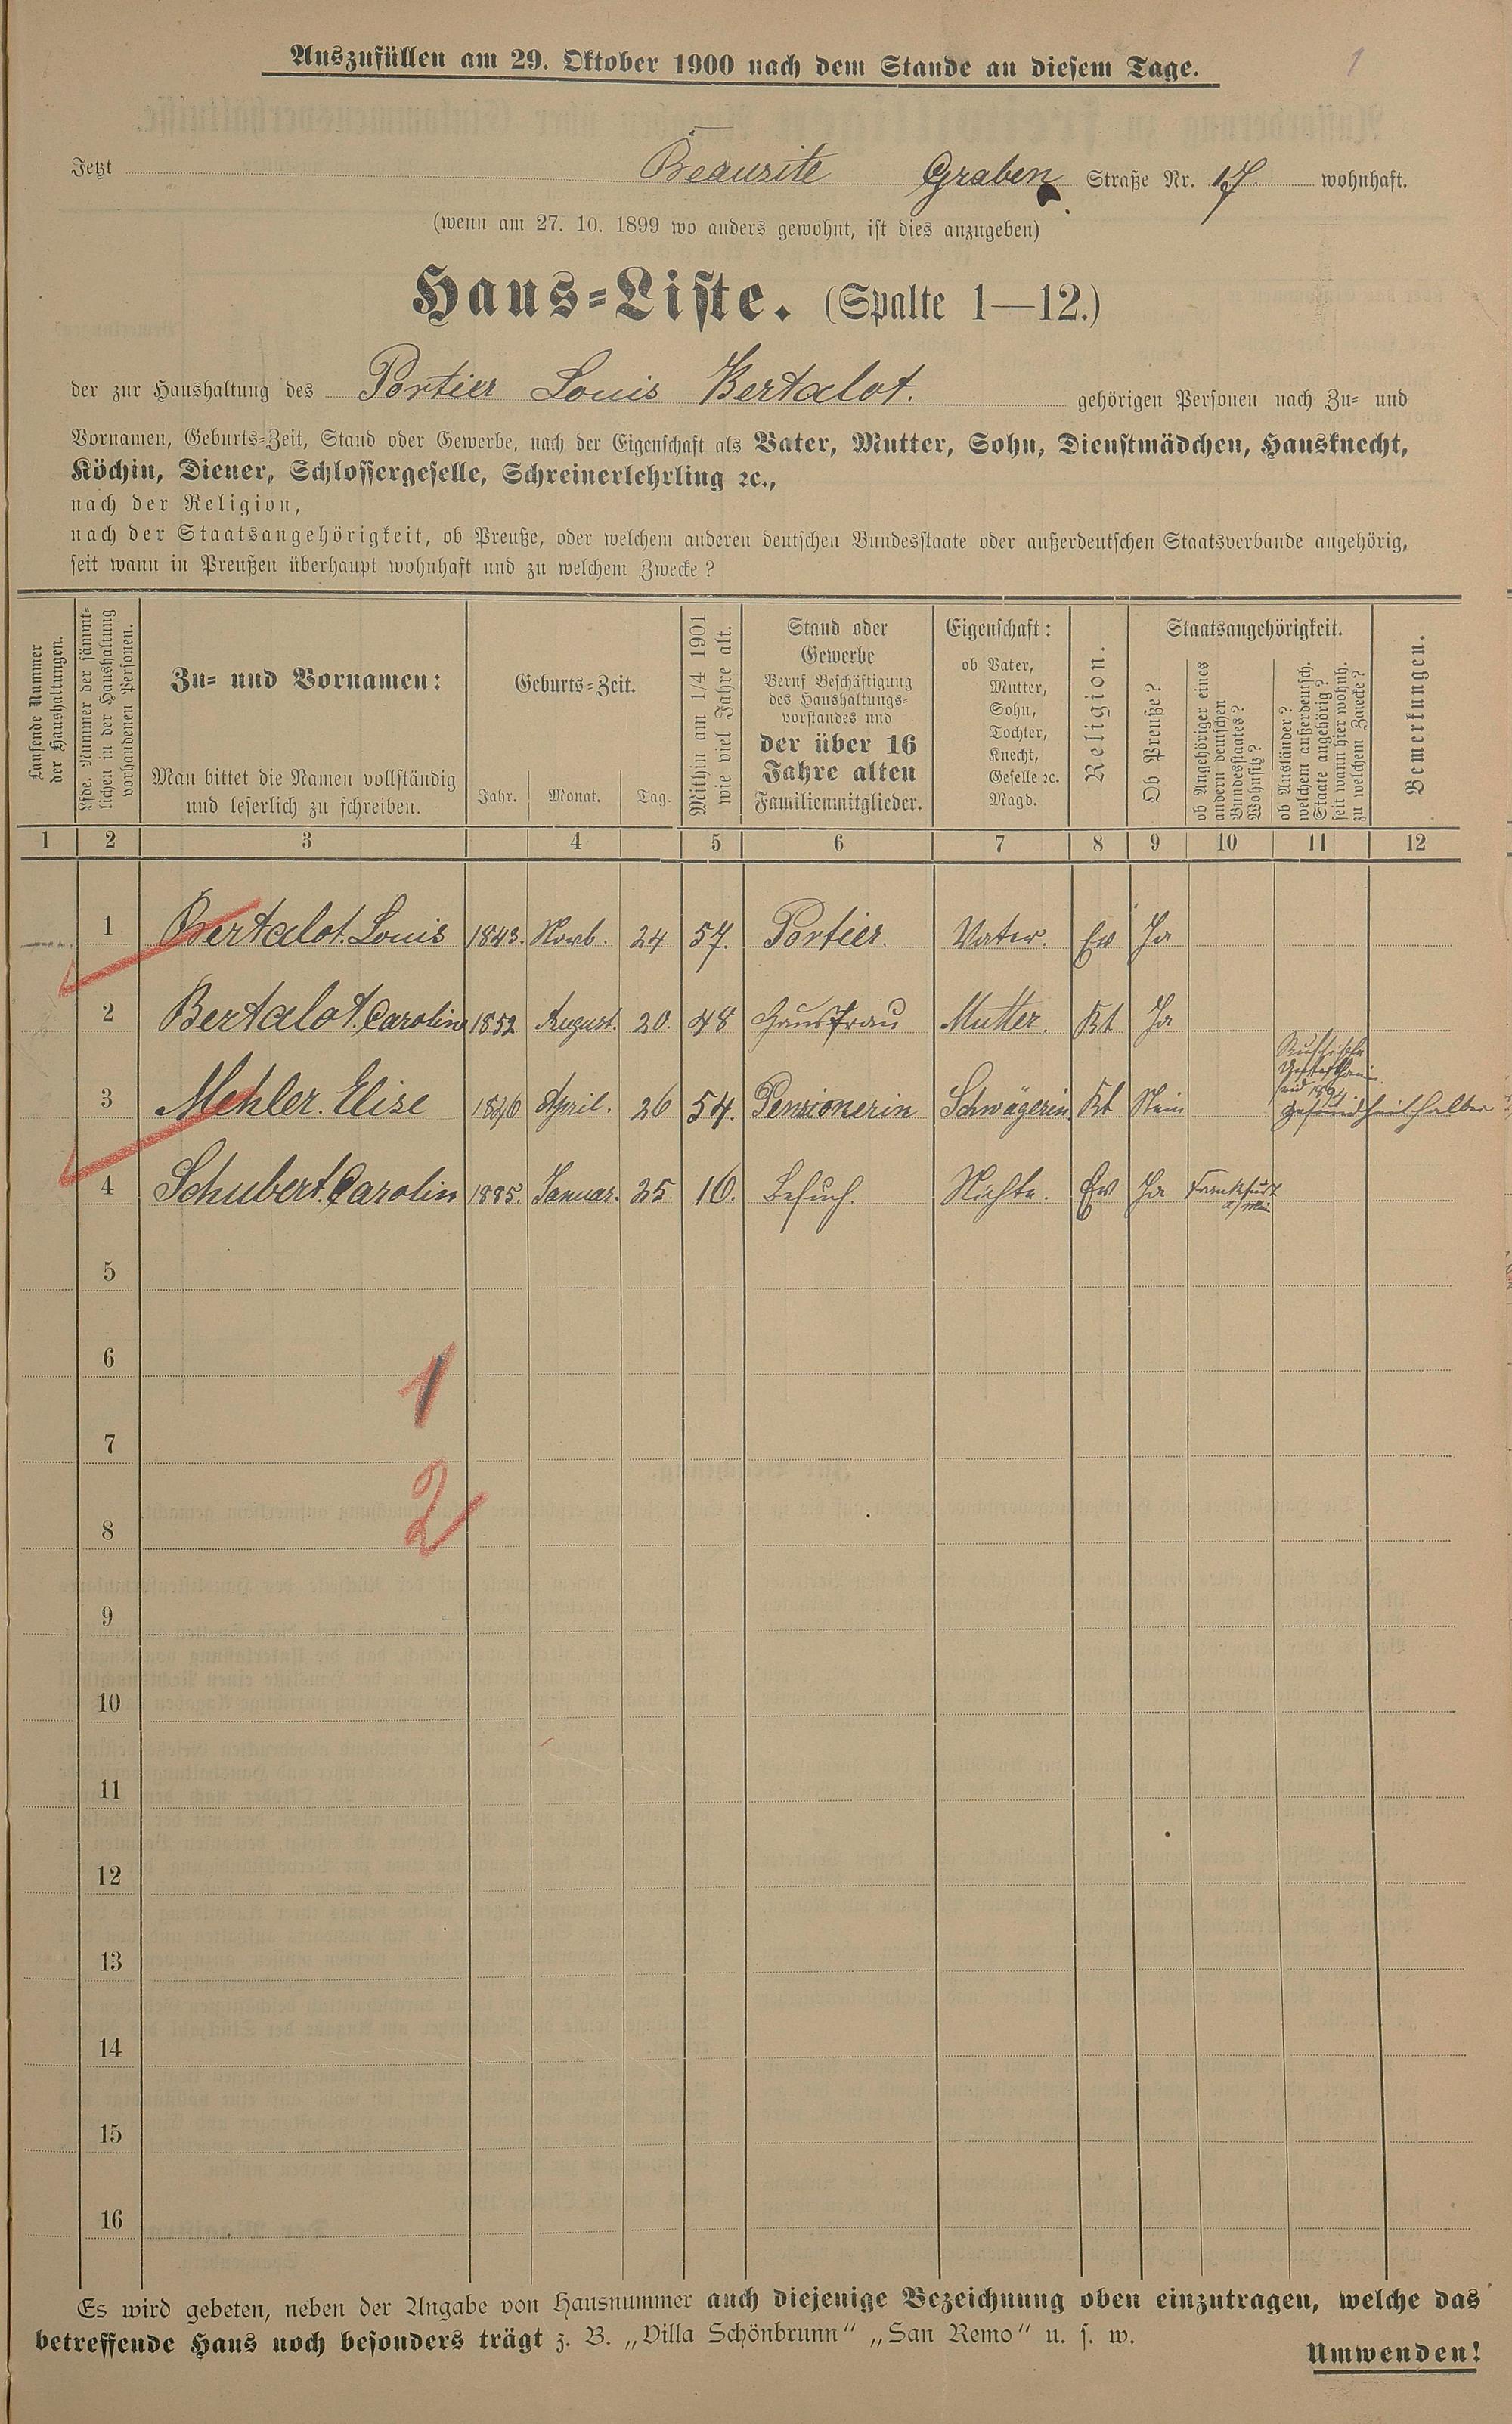 Auszufüllen am 29. Oktober 1900 nach dem Stande an diesem Tage.
1
Jetzt Beausite Graben Straße Nr. 17. wohnhaft.
(wenn am 27. 10. 1899 wo anders gewohnt, ist dies anzugeben)
Haus-Liste. (Spalte 1—12.)
der zur Haushaltung des Portier Louis Bertalot. gehörigen Personen nach Zu- und
Vornamen, Geburts-Zeit, Stand oder Gewerbe, nach der Eigenschaft als Vater, Mutter, Sohn, Dienstmädchen, Hausknecht,
Köchin, Diener, Schlossergeselle, Schreinerlehrling ꝛc.,
nach der Religion,
nach der Staatsangehörigkeit, ob Preuße, oder welchem anderen deutschen Bundesstaate oder außerdeutschen Staatsverbande angehörig,
seit wann in Preußen überhaupt wohnhaft und zu welchem Zwecke?
Laufende Nummer
der Haushaltungen.
Lfde. Nummer der sämmt-
lichen in der Haushaltung
vorhandenen Personen.
Zu- und Vornamen:
Man bittet die Namen vollständig
und leserlich zu schreiben.
Geburts-Zeit.
Jahr. Monat. Tag.
Mithin am 1/4 1901
wie viel Jahre alt.
Stand oder
Gewerbe
Beruf Beschäftigung
des Haushaltungs-
vorstandes und
der über 16
Jahre alten
Familienmitglieder.
Eigenschaft:
ob Vater,
Mutter,
Sohn,
Tochter,
Knecht,
Geselle ꝛc.
Magd.
Religion.
Staatsangehörigkeit.
Ob Preuße?
ob Angehöriger eines
andern deutschen
Bundesstaates?
Wohnsitz?
ob Ausländer?
welchem außerdeutsch.
Staate angehörig?
seit wann hier wohnh.
zu welchem Zwecke?
Bemerkungen.
1 2 3 4 5 6 7 8 9 10 11 12
1 Bertalot. Louis 1843. Novb. 24 57. Portier. Vater. Ev Ja
2 Bertalot. Carolin 1852 August. 20. 48 Hausfrau Mutter. Kt Ja
Russische
seid 1894
3 Mehler. Elise 1846 April. 26 54. Pensionerin Schwägerin Kt Nein gesundheitshalber
4 Schubert. Carolin 1885. Januar. 25. 16. Besuch. Nichte. Ev Ja Frankfurt
a/Main
5
6
1
7
2
8
9
10
11
12
13
14
15
16
Es wird gebeten, neben der Angabe von Hausnummer auch diejenige Bezeichnung oben einzutragen, welche das
betreffende Haus noch besonders trägt z. B. „Villa Schönbrunn“ „San Remo“ u. s. w.
Umwenden!